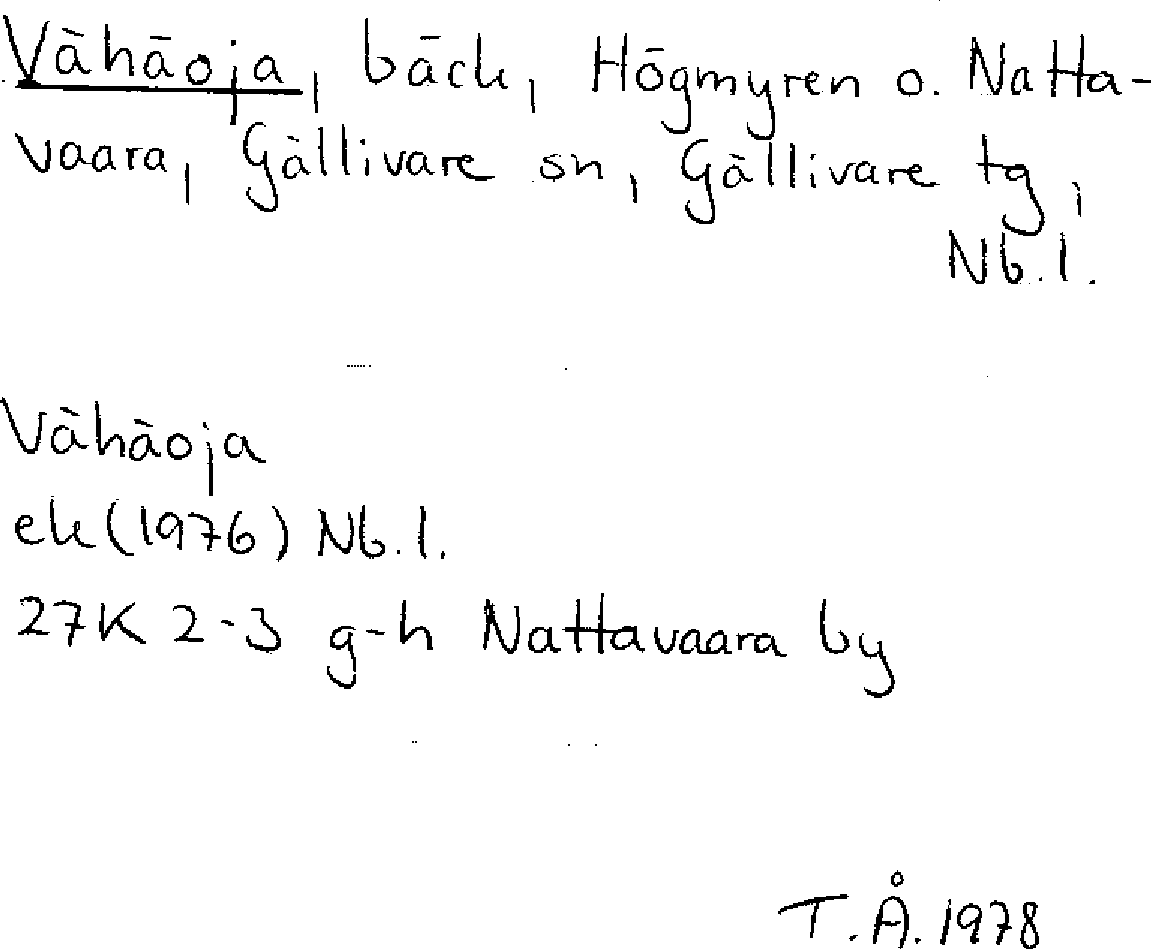 Vähäoja, bäck, Högmyren o. Natta-
vaara, Gällivare sn, Gällivare tg,
Nb.l.
Vähäoja
ek (1976) Nb.l.
27K 2-3 g-h Nattavaara by
T.Å. 1978